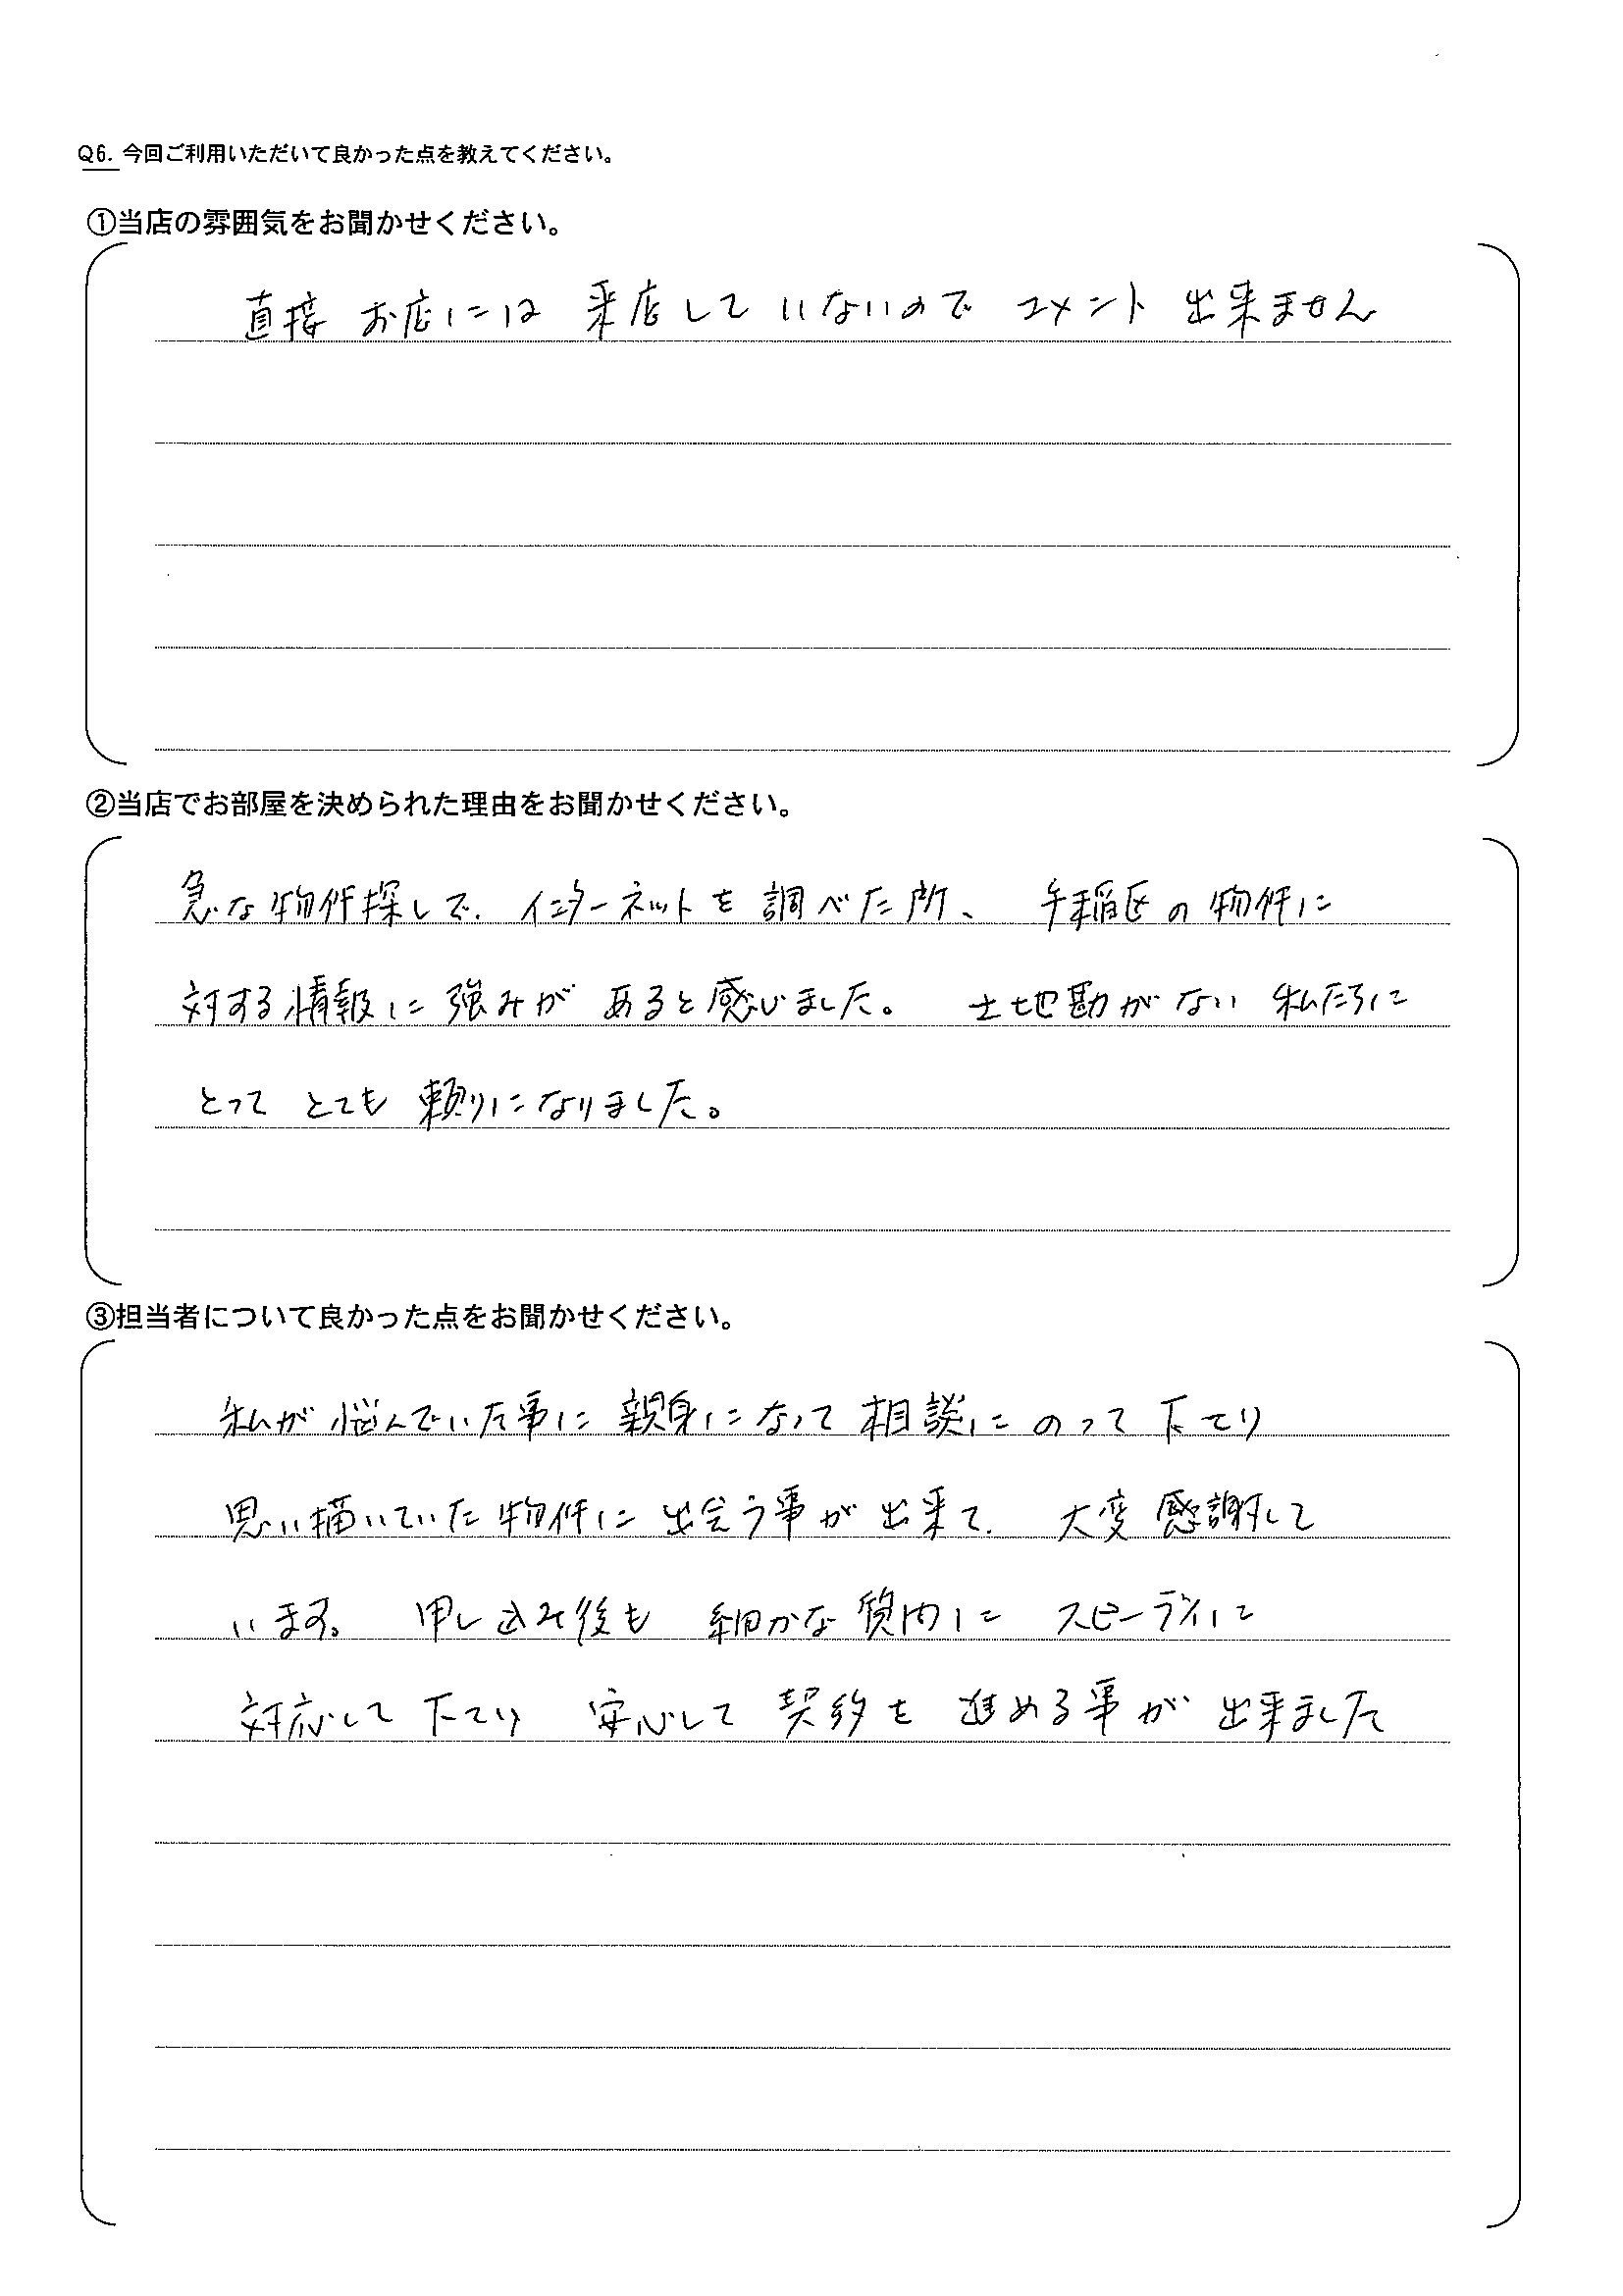 Q6. 今回ご利用いただいて良かった点を教えてください。
①当店の雰囲気をお聞かせください。
直接 お店には 来店して いないので コメント 出来ません
②当店でお部屋を決められた理由をお聞かせください。
急な物件探しで、インターネットを 調べた所、 手稲区の物件に
対する情報に強みが あると感じました。 土地勘がない 私たちに
とって とても 頼りになりました。
③担当者について良かった点をお聞かせください。
私が悩んでいた事に 親身になって 相談に のって 下さり
思い描いていた物件に 出会う事が 出来て、 大変 感謝して
います。 申し込み後も 細かな質問に スピーディに
対応して 下さり 安心して 契約を 進める事が 出来ました